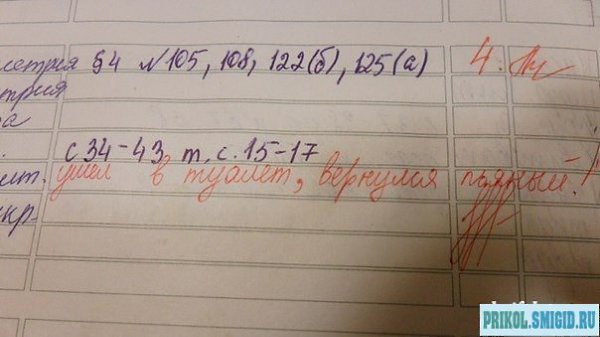 метрия §4 №105, 108, 122(б), 125(а) 4.
трия
а
с 34-43 т. с. 15-17
лит. ушёл в туалет, вернулся пьяный!
PRIKOL.SMIGID.RU